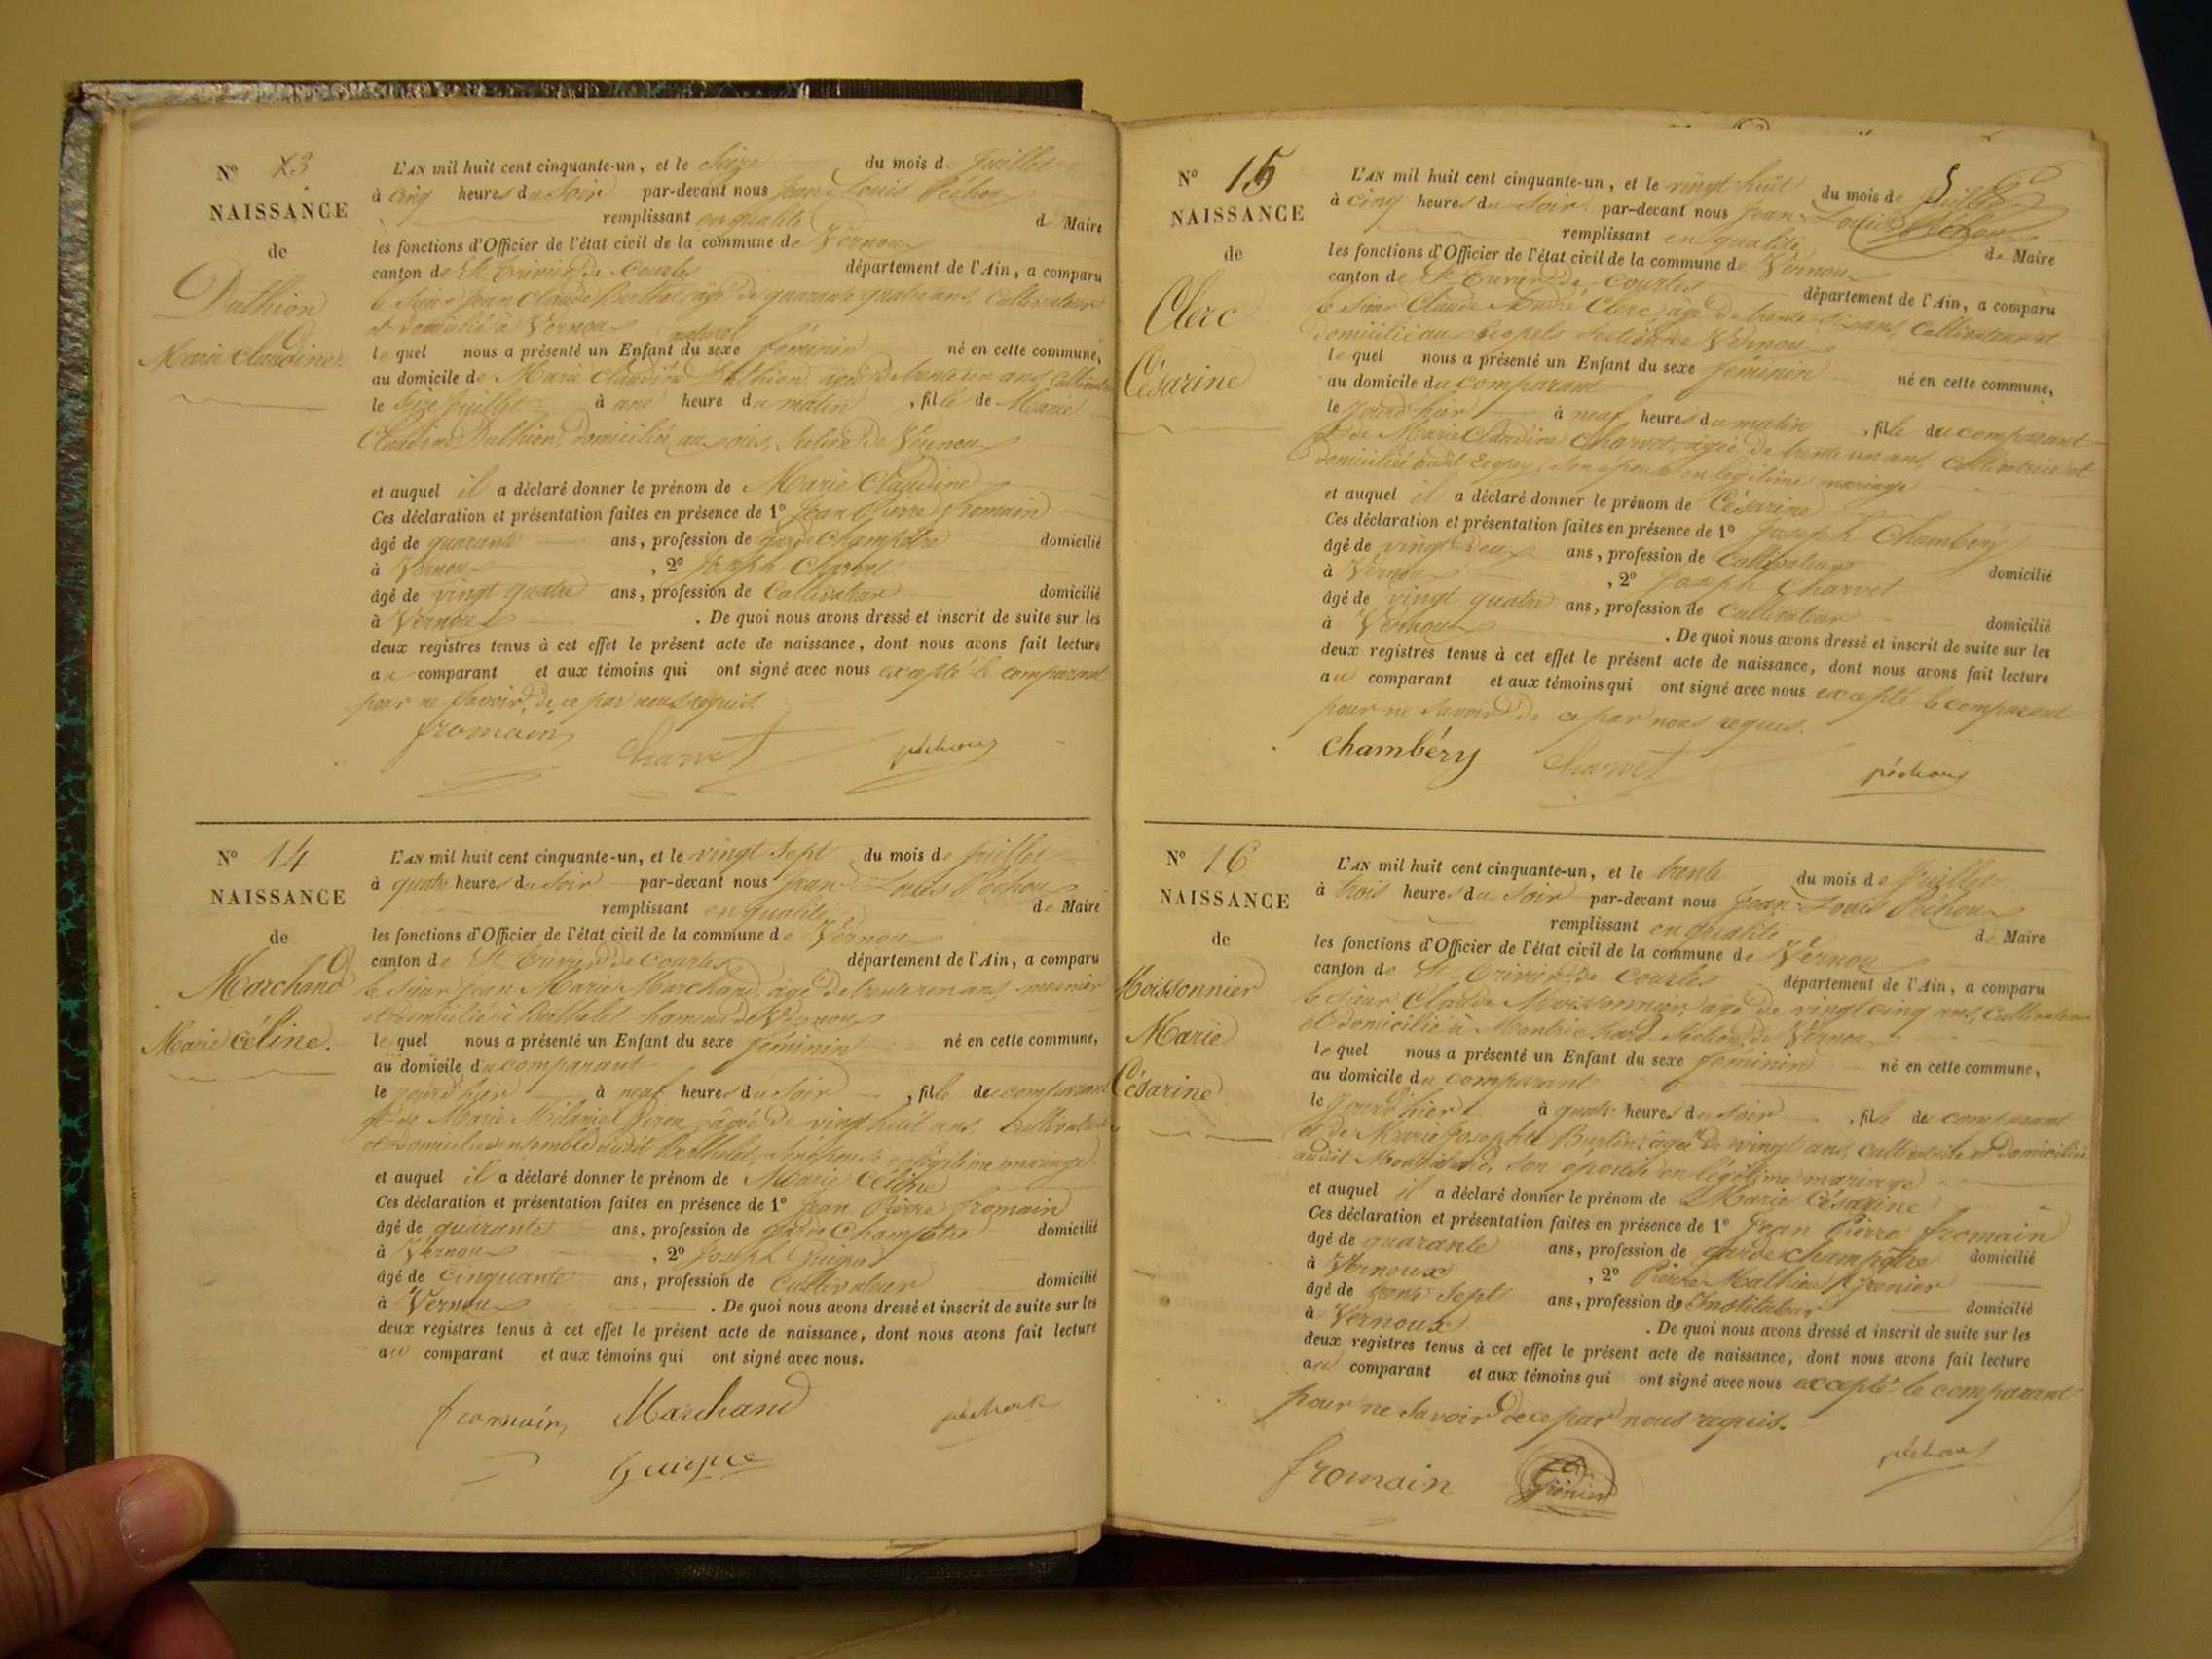 N° 13
NAISSANCE
de
Duthion
Marie Claudine.
L'AN mil huit cent cinquante-un, et le Seize du mois de Juillet
à cinq heures du Soir par-devant nous Jean Louis Péchoux
remplissant en qualité de Maire
les fonctions d'Officier de l'état civil de la commune de Vernoux
canton de St Trivier de Courtes département de l'Ain, a comparu
le Sieur Jean Claude âgé de quarante quatre ans, Cultivateur
et domicilié à Vernoux
naturel
lequel nous a présenté un Enfant du sexe féminin né en cette commune,
au domicile de Marie Claudine Duthion âgée de trente un ans Cultivatrice
le Seize Juillet à une heure du matin, fille de Marie
Claudine Duthion, domiciliée au section de Vernoux
et auquel il a déclaré donner le prénom de Marie Claudine
Ces déclaration et présentation faites en présence de 1° Jean Pierre fromain
âgé de quarante ans, profession de garde Champêtre domicilié
à Vernoux, 2° Joseph Charvet
âgé de vingt quatre ans, profession de Cultivateur domicilié
à Vernoux. De quoi nous avons dressé et inscrit de suite sur les
deux registres tenus à cet effet le présent acte de naissance, dont nous avons fait lecture
au comparant et aux témoins qui ont signé avec nous excepté le comparant
pour ne Savoir de ce par nous requis
fromain Charvet péchoux
N° 14
NAISSANCE
de
Marchand
Marie Céline.
L'AN mil huit cent cinquante-un, et le vingt Sept du mois de Juillet
à quatre heures du Soir par-devant nous Jean Louis Péchoux
remplissant en qualité de Maire
les fonctions d'Officier de l'état civil de la commune de Vernoux
canton de St Trivier de Courtes département de l'Ain, a comparu
le Sieur Jean Marie Marchand, âgé de trente un ans, meunier
et domicilié à Berthelet hameau de Vernoux
lequel nous a présenté un Enfant du sexe féminin né en cette commune,
au domicile du comparant
le jourd'hier à neuf heures du Soir, fille du comparant
et de Marie Mélanie âgée de vingt huit ans, Cultivatrice
et domiciliés ensemble audit Berthelet, Son épouse en légitime mariage.
et auquel il a déclaré donner le prénom de Marie Céline
Ces déclaration et présentation faites en présence de 1° Jean Pierre fromain
âgé de quarante ans, profession de garde Champêtre domicilié
à Vernoux, 2° Joseph Guigue
âgé de cinquante ans, profession de Cultivateur domicilié
à Vernoux. De quoi nous avons dressé et inscrit de suite sur les
deux registres tenus à cet effet le présent acte de naissance, dont nous avons fait lecture
au comparant et aux témoins qui ont signé avec nous.
fromain Marchand péchoux
Guigue
N° 15
NAISSANCE
de
Clerc
Césarine
L'AN mil huit cent cinquante-un, et le vingt huit du mois de Juillet
à cinq heures du Soir par-devant nous Jean Louis Péchoux
remplissant en qualité de Maire
les fonctions d'Officier de l'état civil de la commune de Vernoux
canton de St Trivier de Courtes département de l'Ain, a comparu
le Sieur Claude Marie Clerc, âgé de trente six ans, Cultivateur et
domicilié au section de Vernoux
lequel nous a présenté un Enfant du sexe féminin né en cette commune,
au domicile du comparant
le jourd'hier à neuf heures du matin, fille du comparant
et de Marie Claudine Charvet, âgée de trente un ans, Cultivatrice et
domiciliée audit son épouse en légitime mariage
et auquel il a déclaré donner le prénom de Césarine
Ces déclaration et présentation faites en présence de 1° Joseph Chambéry
âgé de vingt deux ans, profession de Cultivateur domicilié
à Vernoux, 2° Joseph Charvet
âgé de vingt quatre ans, profession de Cultivateur domicilié
à Vernoux. De quoi nous avons dressé et inscrit de suite sur les
deux registres tenus à cet effet le présent acte de naissance, dont nous avons fait lecture
au comparant et aux témoins qui ont signé avec nous excepté le comparant
pour ne Savoir de ce par nous requis.
Chambéry Charvet péchoux
N° 16
NAISSANCE
de
Moissonnier
Marie
Césarine
L'AN mil huit cent cinquante-un, et le trente du mois de Juillet
à trois heures du Soir par-devant nous Jean Louis Péchoux
remplissant en qualité de Maire
les fonctions d'Officier de l'état civil de la commune de Vernoux
canton de St Trivier de Courtes département de l'Ain, a comparu
le Sieur Claude Moissonnier, âgé de vingt cinq ans, Cultivateur
et domicilié à Section de Vernoux
lequel nous a présenté un Enfant du sexe féminin né en cette commune,
au domicile du comparant
le jourd'hier à quatre heures du Soir, fille du comparant
et de Marie Josephte Burlin, âgée de vingt ans, cultivatrice et domiciliée
audit son épouse en légitime mariage
et auquel il a déclaré donner le prénom de Marie Césarine
Ces déclaration et présentation faites en présence de 1° Jean Pierre fromain
âgé de quarante ans, profession de garde champêtre domicilié
à Vernoux, 2° Pierre Mathieu Grenier
âgé de trente Sept ans, profession de Instituteur domicilié
à Vernoux. De quoi nous avons dressé et inscrit de suite sur les
deux registres tenus à cet effet le présent acte de naissance, dont nous avons fait lecture
au comparant et aux témoins qui ont signé avec nous excepté le comparant
pour ne Savoir de ce par nous requis.
fromain Grenier péchoux